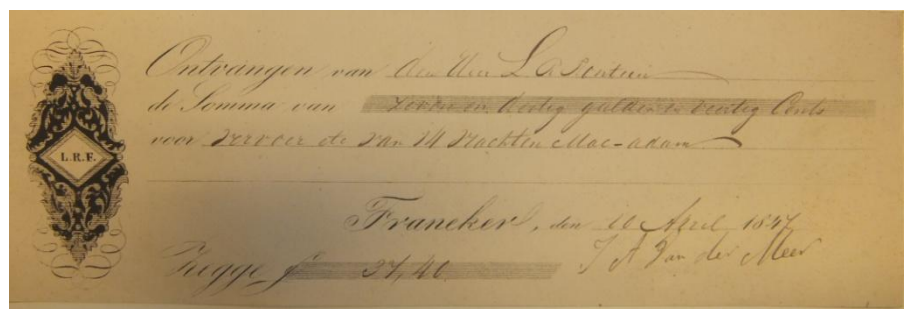 L.R.F.
Ontvangen van den Heer L
de Somma van Zeven en dertig gulden en veertig Cents
voor Vervoer etc van 14 Vrachten Mac-adam
Franeker, den 10 April 1847
Zegge f 37,40
J A Van der Meer